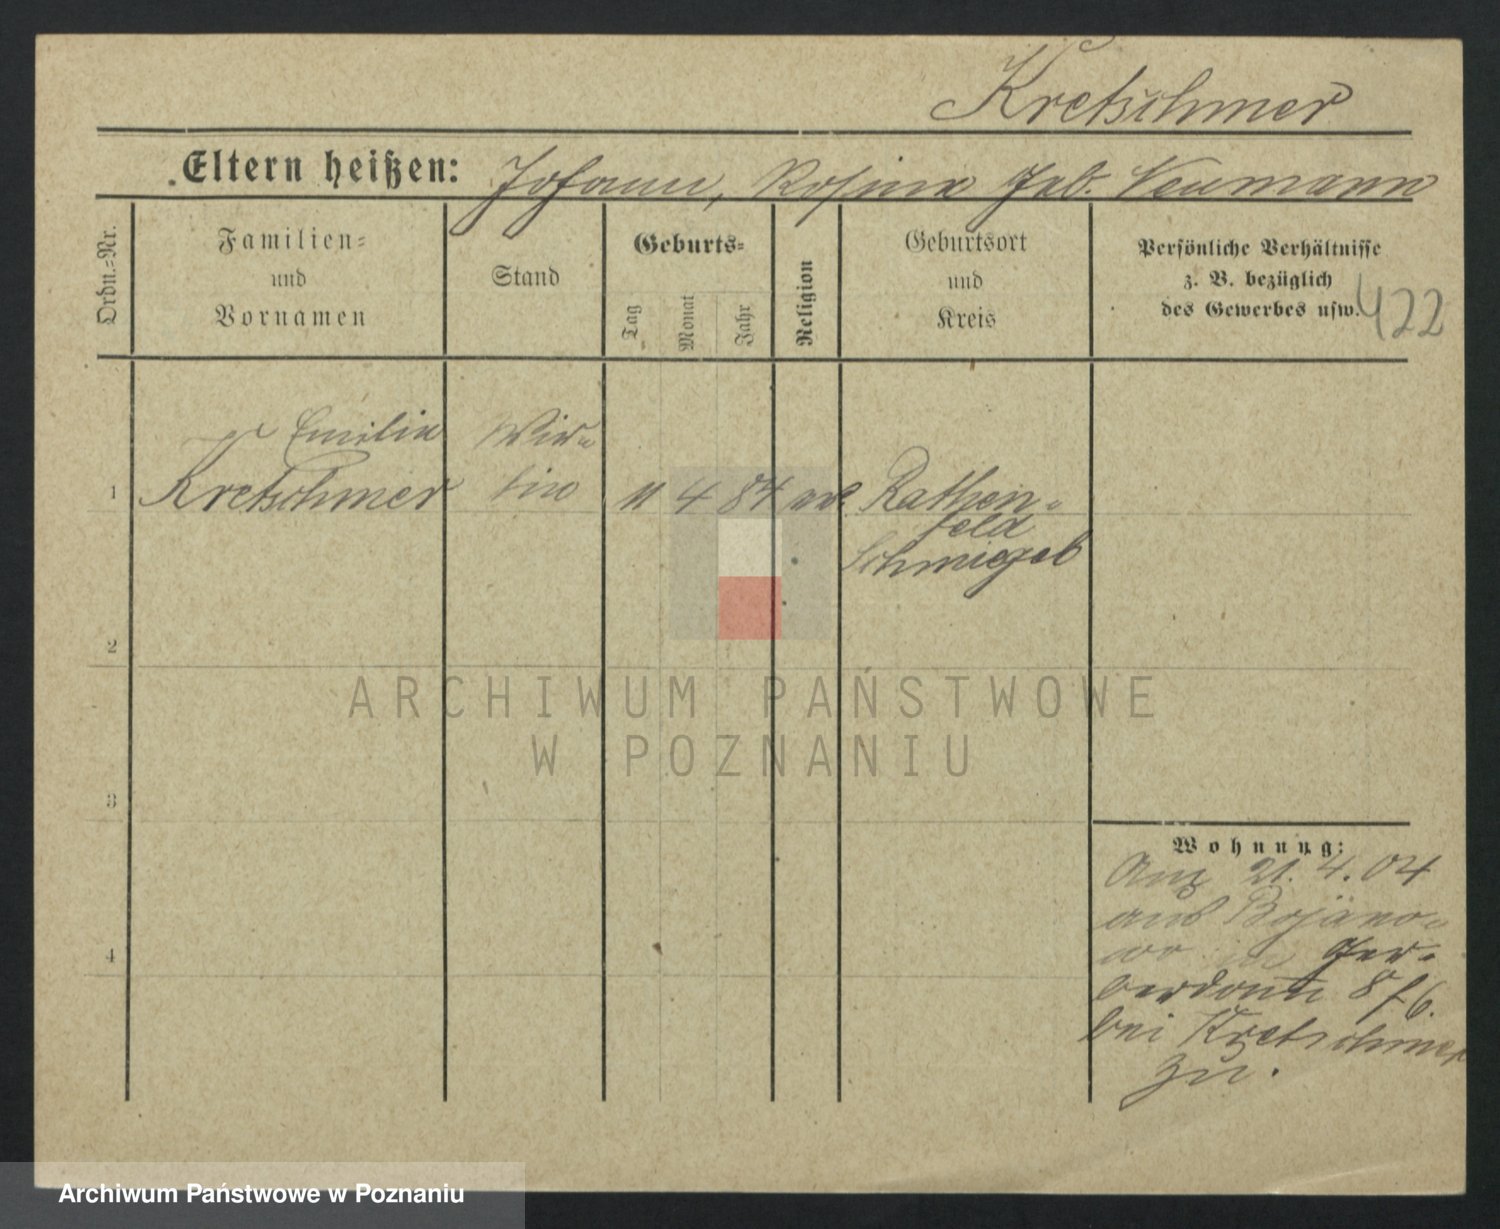 Kretschmer
Eltern heißen: Johann, Rosina geb. Neumann
Ordn.=Nr.
Familien=
und
Vornamen
Stand
Geburts=
Tag
Monat
Jahr
Religion
Geburtsort
und
Kreis
Persönliche Verhältnisse
z. B. bezüglich
des Gewerbes usw.
422
Emilie
1 Kretschmer
Wir=
tin
11 4 84
Rathen=
feld
Schmiegel
2
3
4
Wohnung:
21. 4. 04
aus Bojano=
wo in Ger=
berdamm 8
bei Kretschmer
zu.
ARCHIWUM PAŃSTWOWE
W POZNANIU
Archiwum Państwowe w Poznaniu